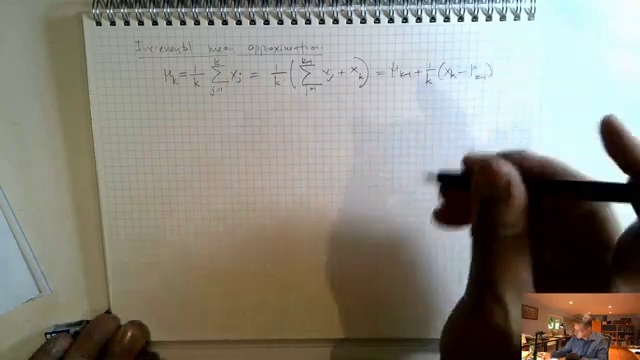 Incremental mean approximation:
μ_k = 1/k ∑_{j=1}^{k} x_j = 1/k ( ∑_{j=1}^{k-1} x_j + x_k ) = μ_{k-1} + 1/k ( x_k - μ_{k-1} )